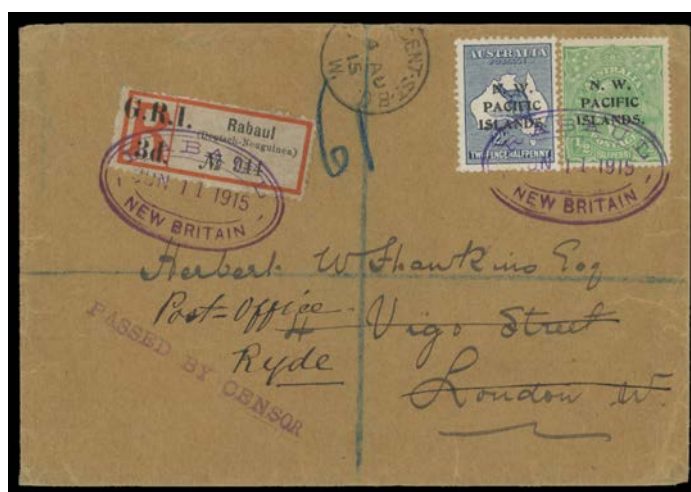 G.R.I.
3d.
Rabaul
(Deutsch-Neuguinea)
№ 944
RABAUL
JUN 11 1915
NEW BRITAIN
4 AU
15
W.
61
AUSTRALIA
POSTAGE
N. W.
PACIFIC
ISLANDS.
TWO PENCE HALFPENNY
N. W.
PACIFIC
ISLANDS.
RABAUL
JUN 11 1915
NEW BRITAIN
Herbert W Hawkins Esq
Post-Office
4 Vigo Street
Ryde
London W.
PASSED BY CENSOR